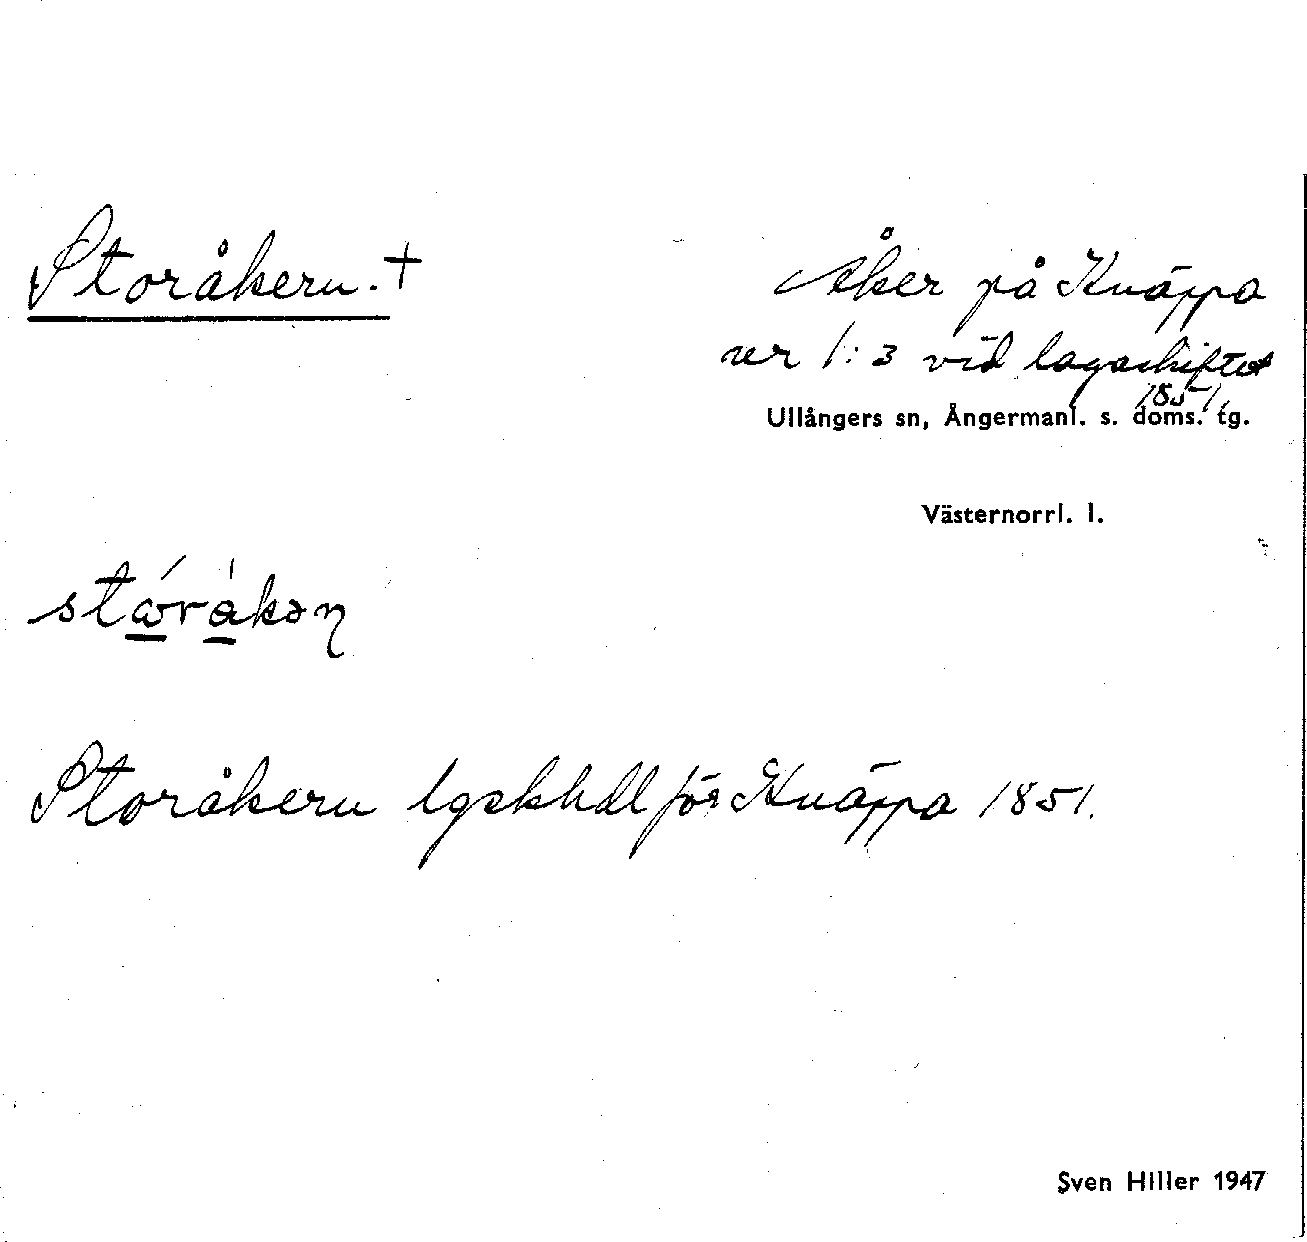 Storåkern. +
Åker på Knäppa
ner 1:3 vid lagaskiftet
1851.
Ullångers sn, Ångermanl. s. doms. tg.
Västernorrl. l.
Storåkern lgskhdl för Knäppa 1851.
Sven Hiller 1947